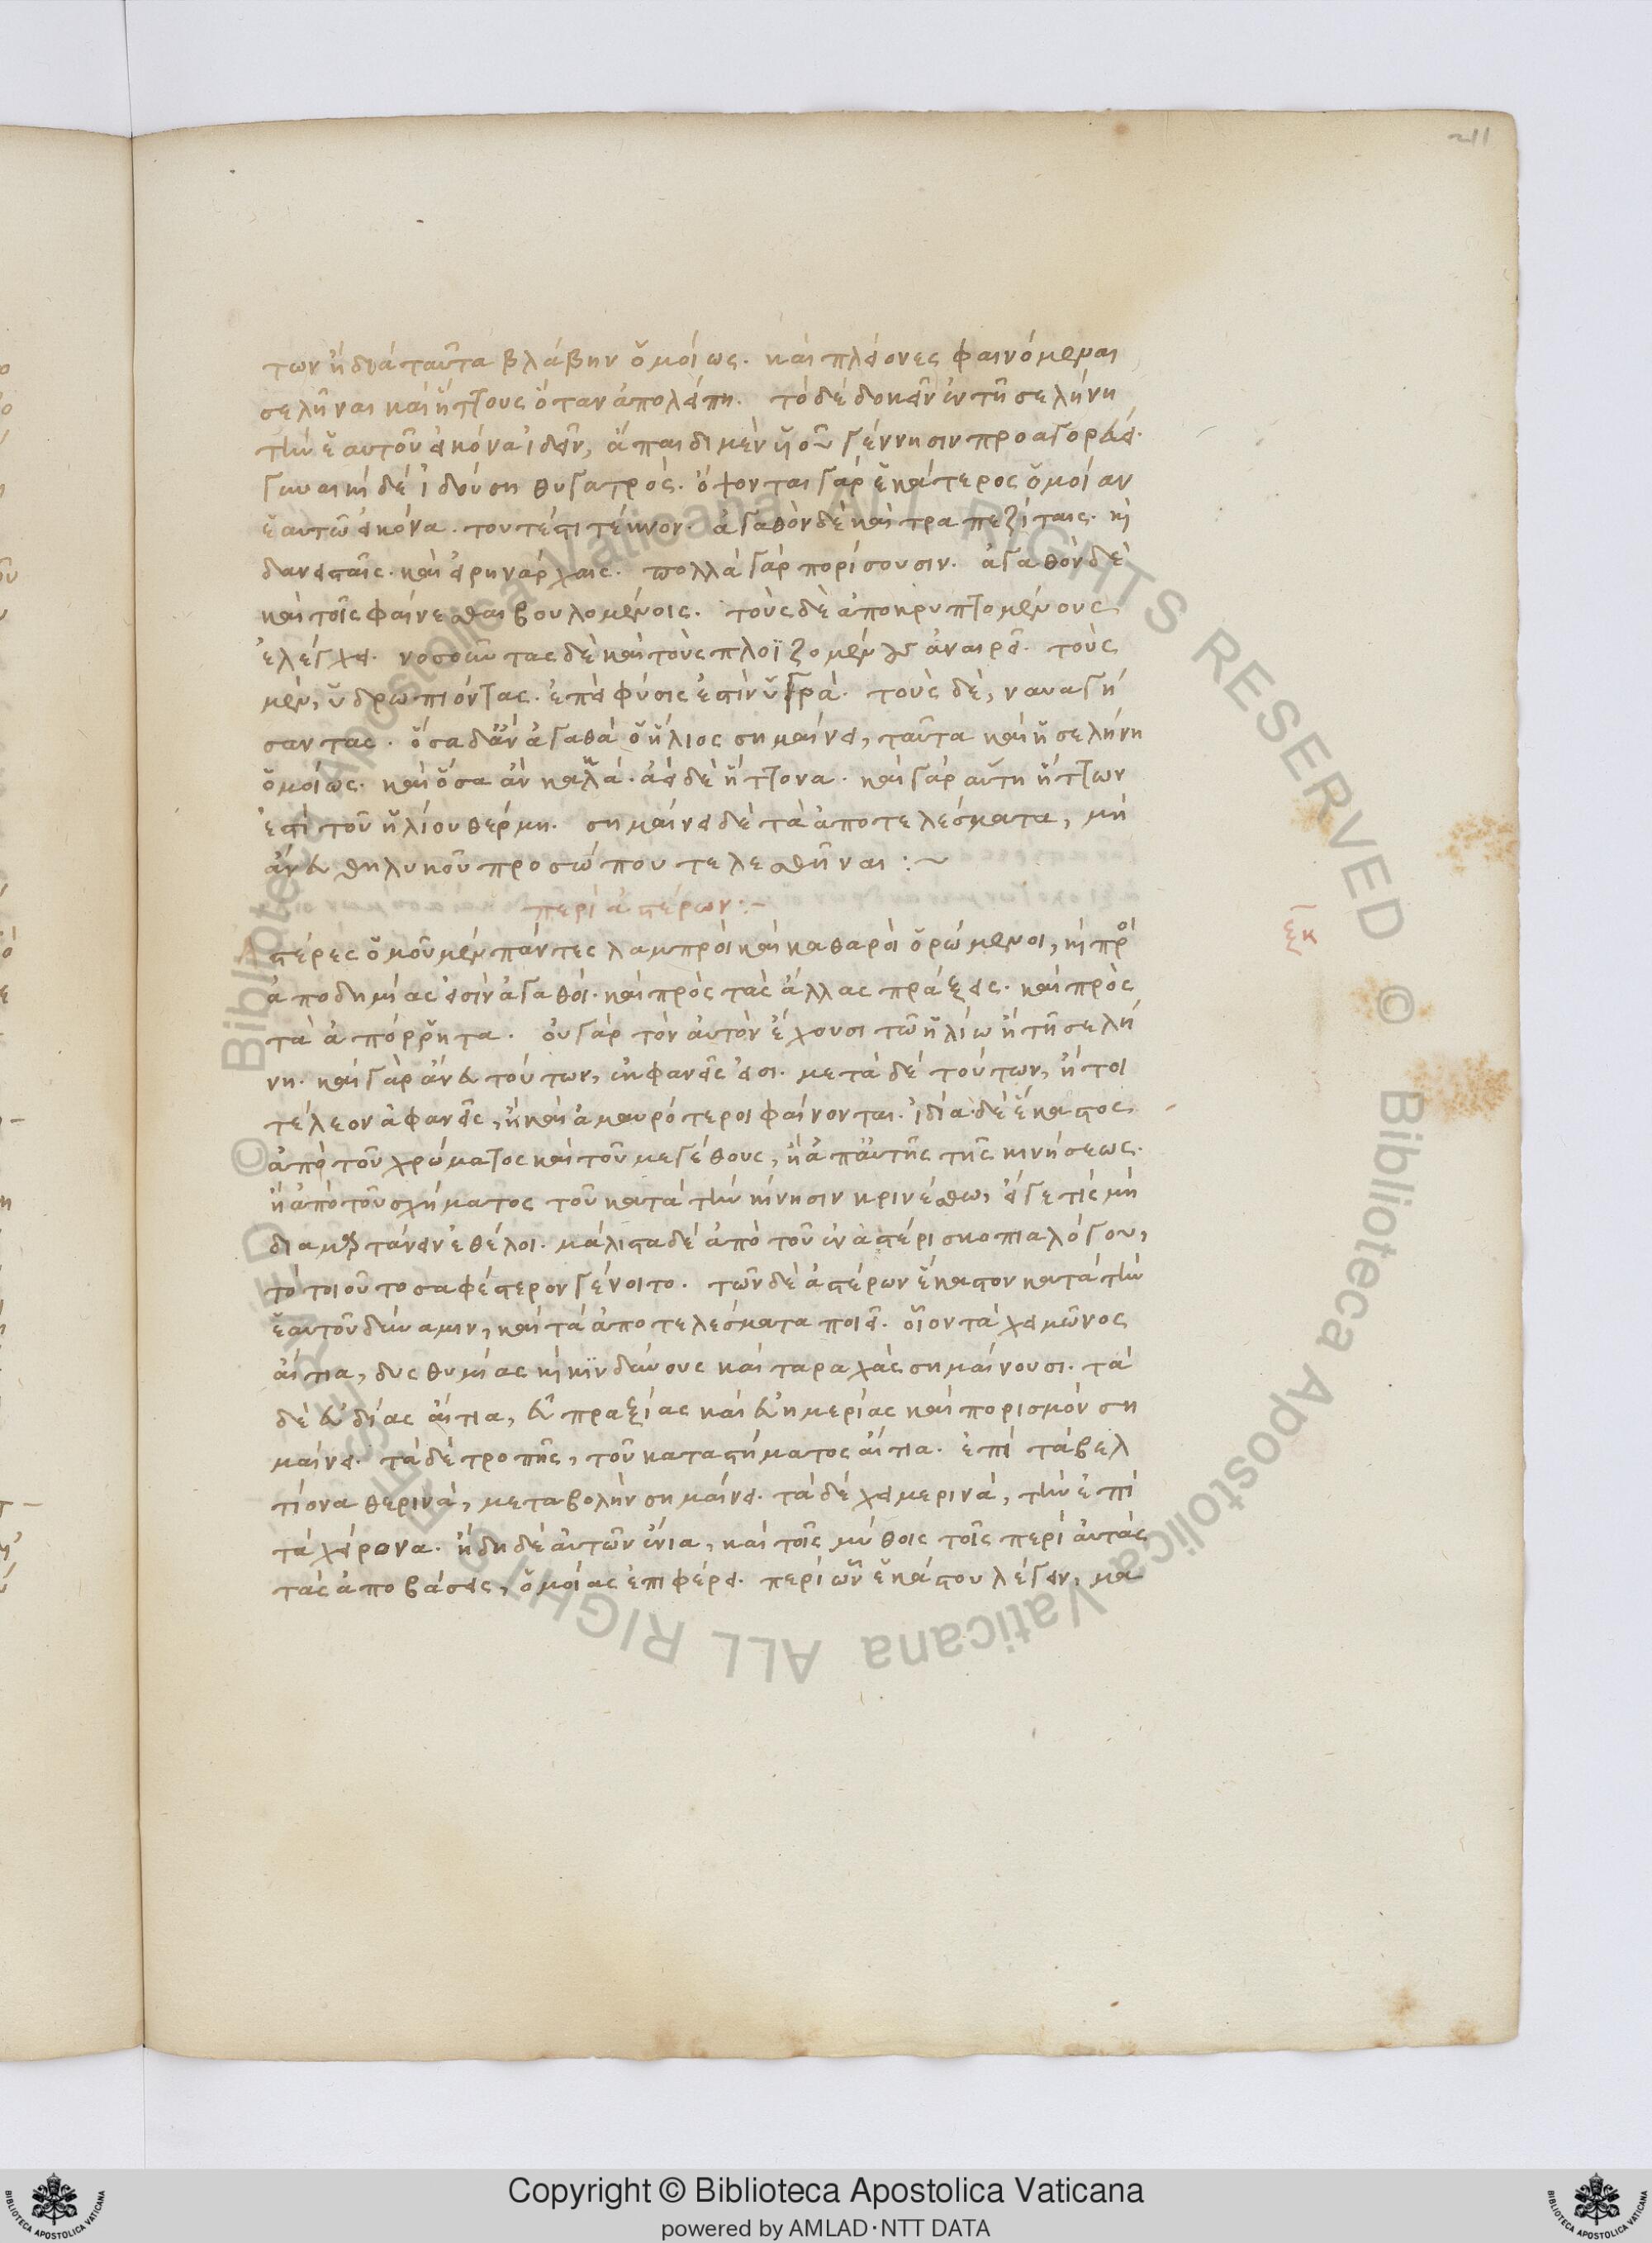 211
των ἢ διὰ ταῦτα βλάβην ὁμοίως. καὶ πλείονες φαινόμεναι
σελῆναι καὶ ἥττους ὅταν ἀπολείπη. τὸ δὲ δοκεῖν ἐν τῆ σελήνη
τὴν ἑαυτοῦ εἰκόνα ἰδεῖν, ἄπαιδι μὲν υἱοῦ γέννησιν προαγορεύει.
γυναικὶ δὲ ἰδούση θυγατρός. ὄψονται γὰρ ἑκάτερος ὁμοίαν
ἑαυτῶ εἰκόνα. τουτέστι τέκνον. ἀγαθὸν δὲ καὶ τραπεζίταις. καὶ
δανεισταῖς. καὶ εἰρηνάρχαις. πολλὰ γὰρ πορίσουσιν. ἀγαθὸν δὲ
καὶ τοῖς φαίνεσθαι βουλομένοις. τοὺς δὲ ἀποκρυπτομένους
ἐλέγχει. νοσοῦντας δὲ καὶ τοὺς πλοϊζομένους ἀναιρεῖ. τοὺς
μὲν, ὑδρωπιόντας. ἐπεὶ φύσις ἐστὶν ὑγρά. τοὺς δὲ, ναυαγή
σαντας. ὅσα δ' ἂν ἀγαθὰ ὁ ἥλιος σημαίνει, ταῦτα καὶ ἡ σελήνη
ὁμοίως. καὶ ὅσα ἂν κακά. ἀεὶ δὲ ἥττονα. καὶ γὰρ αὕτη ἥττων
ἐστὶ τοῦ ἡλίου θέρμη. σημαίνει δὲ τὰ ἀποτελέσματα, μὴ
ἄνευ θηλυκοῦ προσώπου τελεσθῆναι :~
περὶ ἀστέρων :-
κξ
Ἀστέρες ὁμοῦ μὲν πάντες λαμπροὶ καὶ καθαροὶ ὁρώμενοι, καὶ πρὸς
ἀποδημίας εἰσὶν ἀγαθοί. καὶ πρὸς τὰς ἄλλας πράξεις. καὶ πρὸς
τὰ ἀπόρρητα. οὐ γὰρ τὸν αὐτὸν ἔχουσι τῶ ἡλίω ἢ τῆ σελή
νη. καὶ γὰρ ἄνευ τούτων, ἐκφανεῖς εἰσι. μετὰ δὲ τούτων, ἤτοι
τέλεον ἀφανεῖς, ἢ καὶ ἀμαυρότεροι φαίνονται. ἰδία δὲ ἕκαστος
ἀπὸ τοῦ χρώματος καὶ τοῦ μεγέθους, ἢ ἀπ' αὐτῆς τῆς κινήσεως.
ἢ ἀπὸ τοῦ σχήματος τοῦ κατὰ τὴν κίνησιν κρινέσθω, εἴγε τις μὴ
διαμαρτάνειν ἐθέλοι. μάλιστα δὲ ἀπὸ τοῦ ἐν ἀστέρι σκοπιαλόγου,
τὸ τοιοῦτο σαφέστερον γένοιτο. τῶν δὲ ἀστέρων ἕκαστον κατὰ τὴν
ἑαυτοῦ δύναμιν, καὶ τὰ ἀποτελέσματα ποιεῖ. οἷον τὰ χειμῶνος
αἴτια, δυσθυμίας καὶ κινδύνους καὶ ταραχὰς σημαίνουσι. τὰ
δὲ εὐδίας αἴτια, εὐπραξίας καὶ εὐημερίας καὶ πορισμὸν ση
μαίνει. τὰ δὲ τροπῆς, τοῦ καταστήματος αἴτια. ἐπὶ τὰ βελ
τίονα θερινὰ, μεταβολὴν σημαίνει. τὰ δὲ χειμερινὰ, τὴν ἐπὶ
τὰ χείρονα. ἤδη δὲ αὐτῶν ἔνια, καὶ τοῖς μύθοις τοῖς περὶ αὐτὰς
τὰς ἀποβάσεις, ὁμοίας ἐπιφέρει. περὶ ὧν ἑκάστου λέγειν, μα
© Biblioteca Apostolica Vaticana ALL RIGHTS RESERVED © Biblioteca Apostolica Vaticana ALL RIGHTS RESERVED
Copyright © Biblioteca Apostolica Vaticana
powered by AMLAD·NTT DATA
BIBLIOTECA APOSTOLICA VATICANA
BIBLIOTECA APOSTOLICA VATICANA